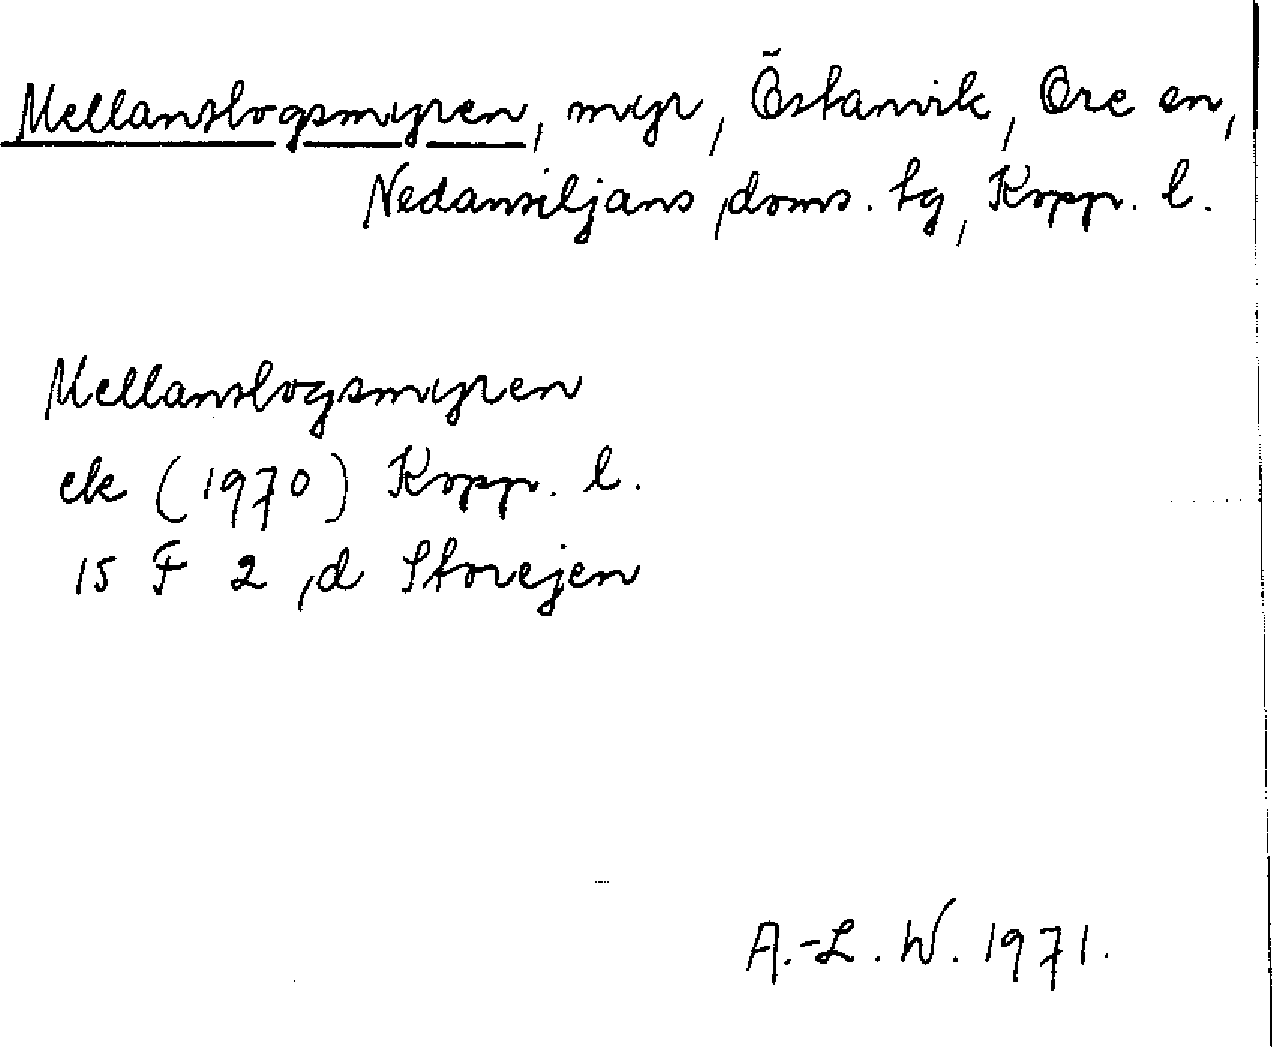 Mellanslogsmyren, myr, Östanvik, Ore sn,
Nedansiljans doms. tg, Kopp. l.
Mellanslogsmyren
ek (1970) Kopp. l.
15 F 2 d Storejen
A.-L. W. 1971.